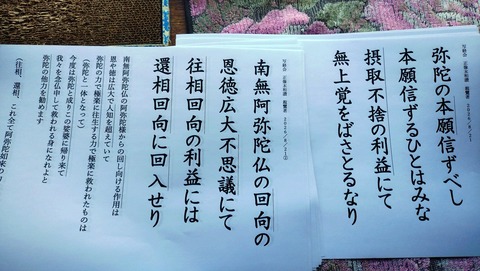 正像末和讃
弥陀の本願信ずべし
本願信ずるひとはみな
摂取不捨の利益にて
無上覚をばさとるなり
正像末和讃
南無阿弥陀仏の回向の
恩徳広大不思議にて
往相回向の利益には
還相回向に回入せり
南無阿弥陀仏の阿弥陀様からの回し向ける作用は
恩や徳は広大で人知を超えていて
弥陀の力で極楽に往生する力で極楽に救われたものは
(弥陀と一体となって)
今度は弥陀と成りこの娑婆に帰り来て
我々を念仏申して救われる身になれよと
弥陀の他力を勧めます
(往相、還相、これ全て阿弥陀如来の